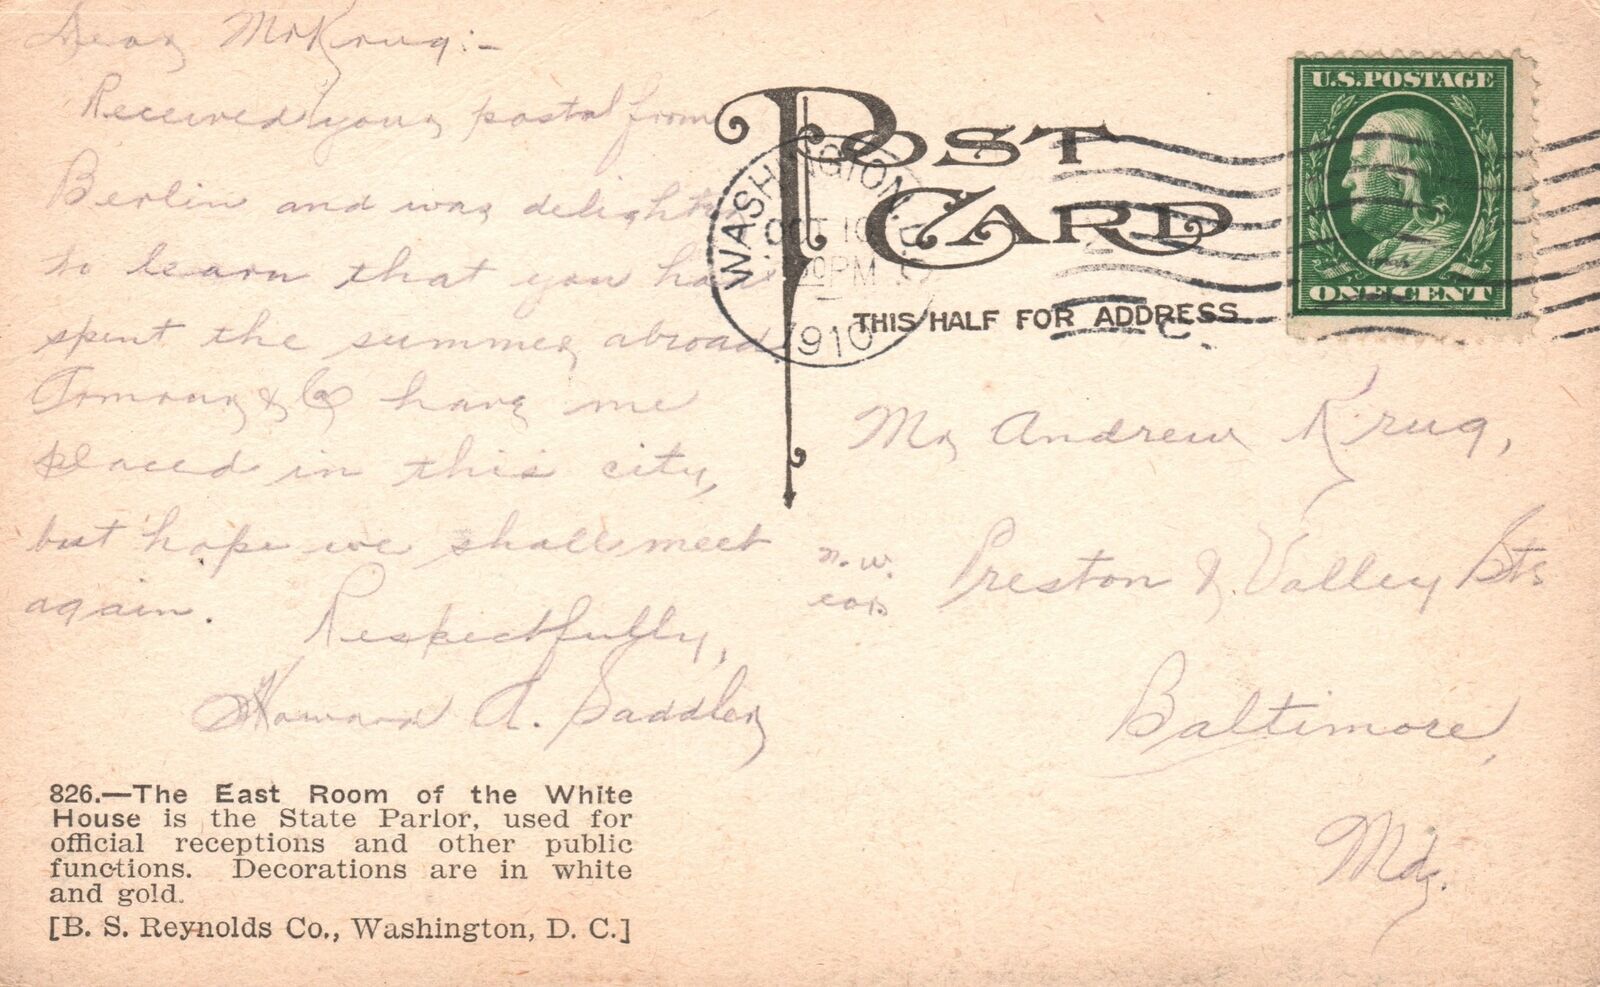 Dear Mr Krug:-
Received your postal from
Berlin and was delighted
to learn that you have
spent the summer abroad
& Co have me
placed in this city,
but hope we shall meet
again.
Respectfully,
Howard A. Saddler
826.—The East Room of the White
House is the State Parlor, used for
official receptions and other public
functions. Decorations are in white
and gold.
[B. S. Reynolds Co., Washington, D. C.]
POST
CARD
THIS HALF FOR ADDRESS
WASHINGTON, D.C.
OCT 10
PM
1910
U.S. POSTAGE
ONE CENT
Mr Andrew Krug,
n. w. cor. Preston & Valley Sts
Baltimore,
Md.